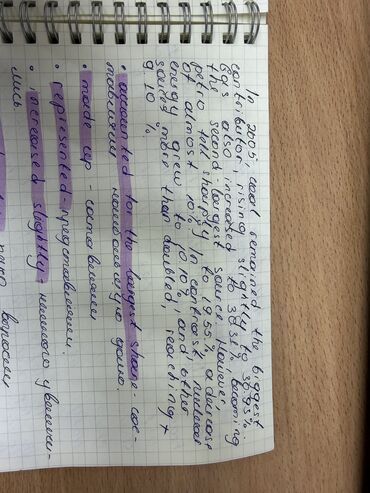 In 2005, coal remained the biggest
contributor, rising slightly to 30.93%.
Gas also increased to 30.31%, becoming
the second-largest source. However,
petro fell sharply to 19.55%, a decrease
of almost 10%. In contrast, nuclear
energy grew to 10.10%, and other
sources more than doubled, reaching
9.10%
• accounted for the largest share - сос-
тавляли наибольшую долю.
• made up - составляли
• represented - представляли.
• increased slightly - немного увеличи-
лись.